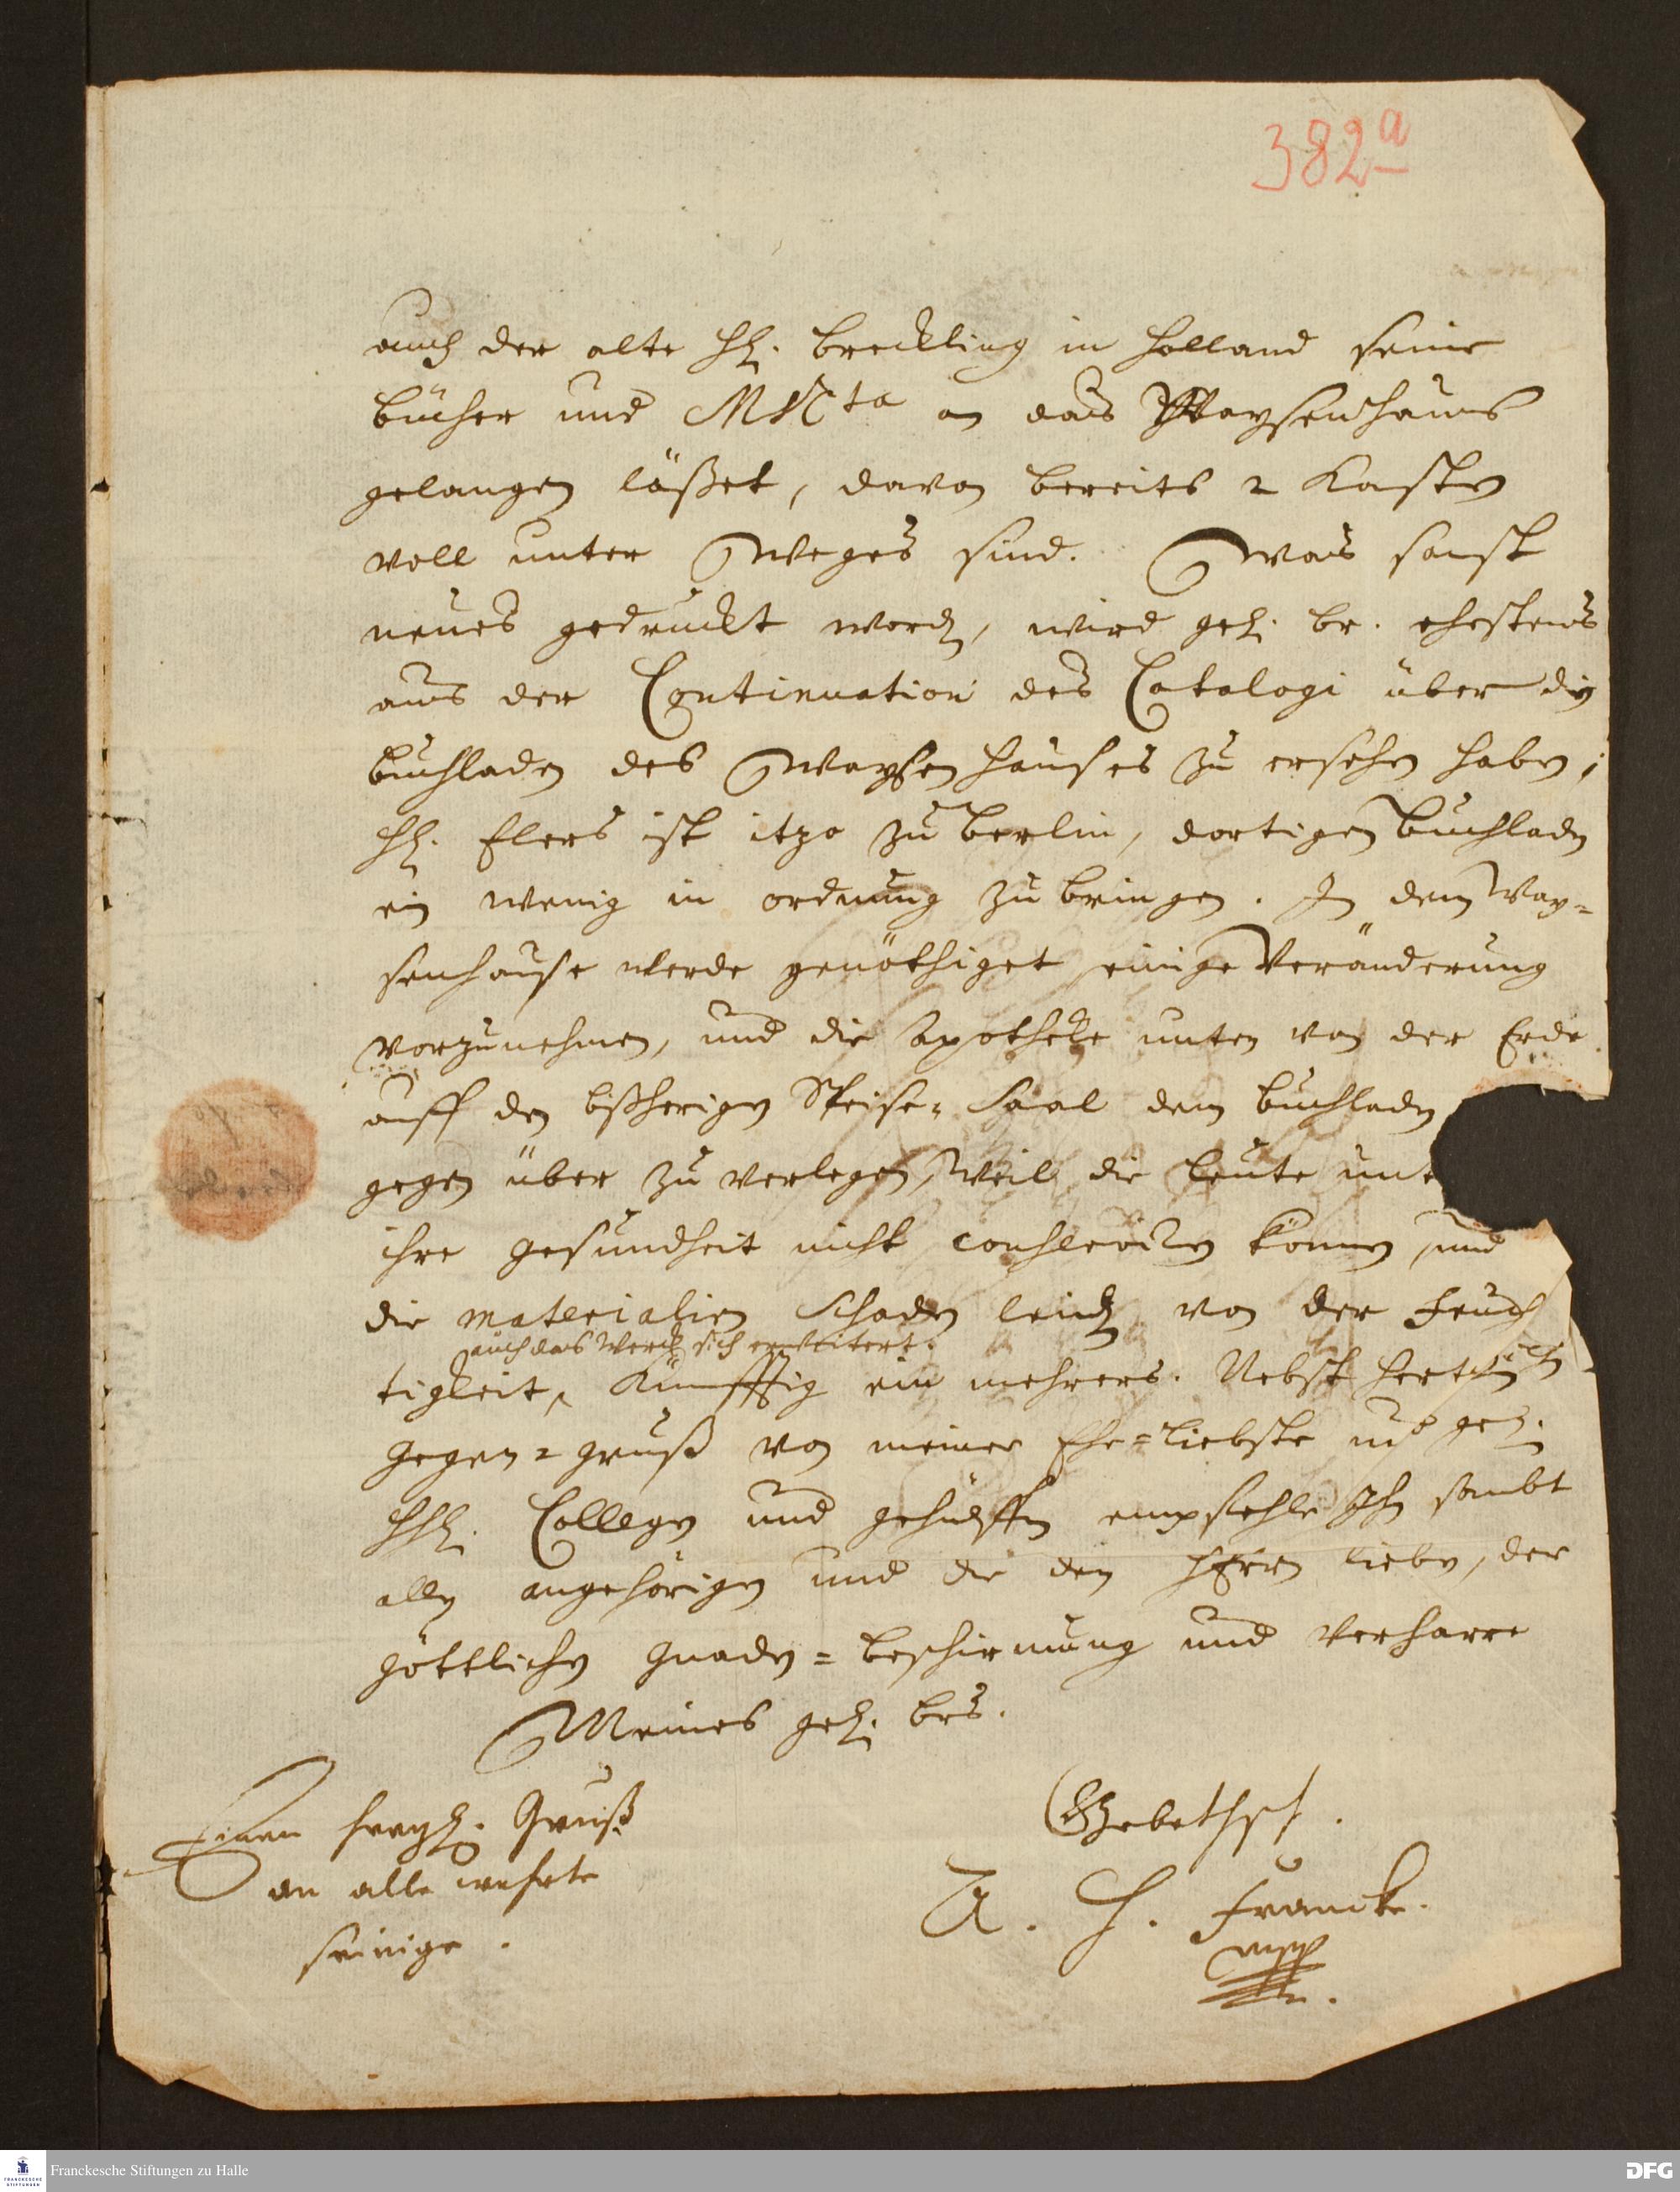 382a
auch der alte HE. Breckling in Holland seine
bücher und MSCta an das Waysenhaus
gelangen läßet, davon bereits 2 Kasten
voll unter Weges sind. Was sonst
neues gedruckt worden, wird gel. br. ehestens
aus der Continuation des Catalogi über den
buchladen des Waysenhauses zu ersehen haben;
HE. Elers ist itzo zu Berlin, dortigen Buchladen
ein wenig in ordnung zu bringen. In dem Way=
senhause werde genöthiget einige Veränderung
vorzunehmen, und die Apotheke unten von der Erde
auff den bißherigen Speise-Saal dem buchladen
gegen über zu verlegen, weil die Leute unte
ihre gesundheit nicht können, und
die materialien Schaden leiden von der Feuch
auch das Werck sich erweitert.
tigkeit, Künfftig ein mehrers. Nebst hertzlichen
gegen-gruß von meiner Ehe=Liebste und gel.
HHE. Collegen und gehülffen empfehle Ihn sambt
allen angehörigen und die den HErrn lieben, der
göttlichen Gnaden=beschirmung und verharre
Meines gel. brs.
Einen hertzl. Gruß
an alle werthe
seinige.
Gebethsch.
A. H. Francke.
mpp